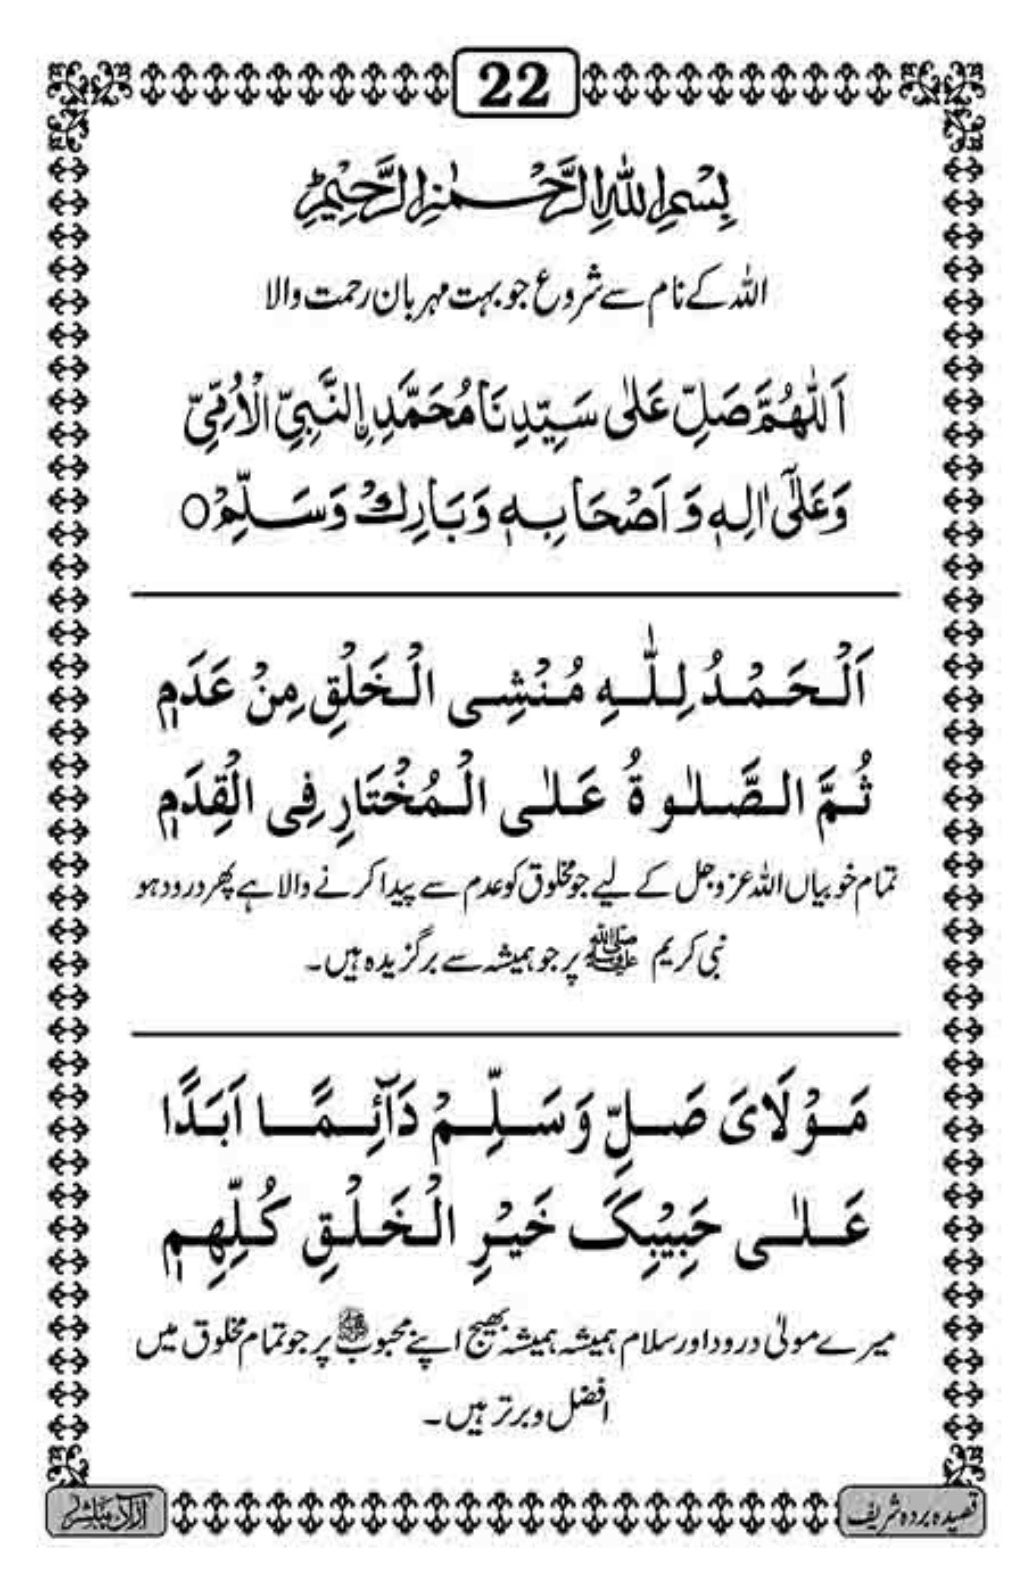 22
بِسْمِ اللهِ الرَّحْمٰنِ الرَّحِيْمِ
اللہ کے نام سے شروع جو بہت مہربان رحمت والا
اَللّٰهُمَّ صَلِّ عَلٰى سَيِّدِنَا مُحَمَّدِ ࣙالنَّبِيِّ الْاُمِّيِّ
وَعَلٰٓى اٰلِهٖ وَ اَصْحَابِهٖ وَبَارِكْ وَسَلِّمْ○
اَلْحَمْدُ لِلّٰهِ مُنْشِی الْخَلْقِ مِنْ عَدَمٖ
ثُمَّ الصَّلٰوةُ عَلٰی الْمُخْتَارِ فِی الْقِدَمٖ
تمام خوبیاں اللہ عزوجل کے لیے جو مخلوق کو عدم سے پیدا کرنے والا ہے پھر درود ہو
نبی کریم ﷺ پر جو ہمیشہ سے برگزیدہ ہیں۔
مَوْلَایَ صَلِّ وَسَلِّمْ دَآئِمًا اَبَدًا
عَلٰی حَبِيْبِکَ خَيْرِ الْخَلْقِ کُلِّهِمٖ
میرے مولیٰ درود اور سلام ہمیشہ ہمیشہ بھیج اپنے محبوب ﷺ پر جو تمام مخلوق میں
افضل و برتر ہیں۔
قصیدہ بردہ شریف